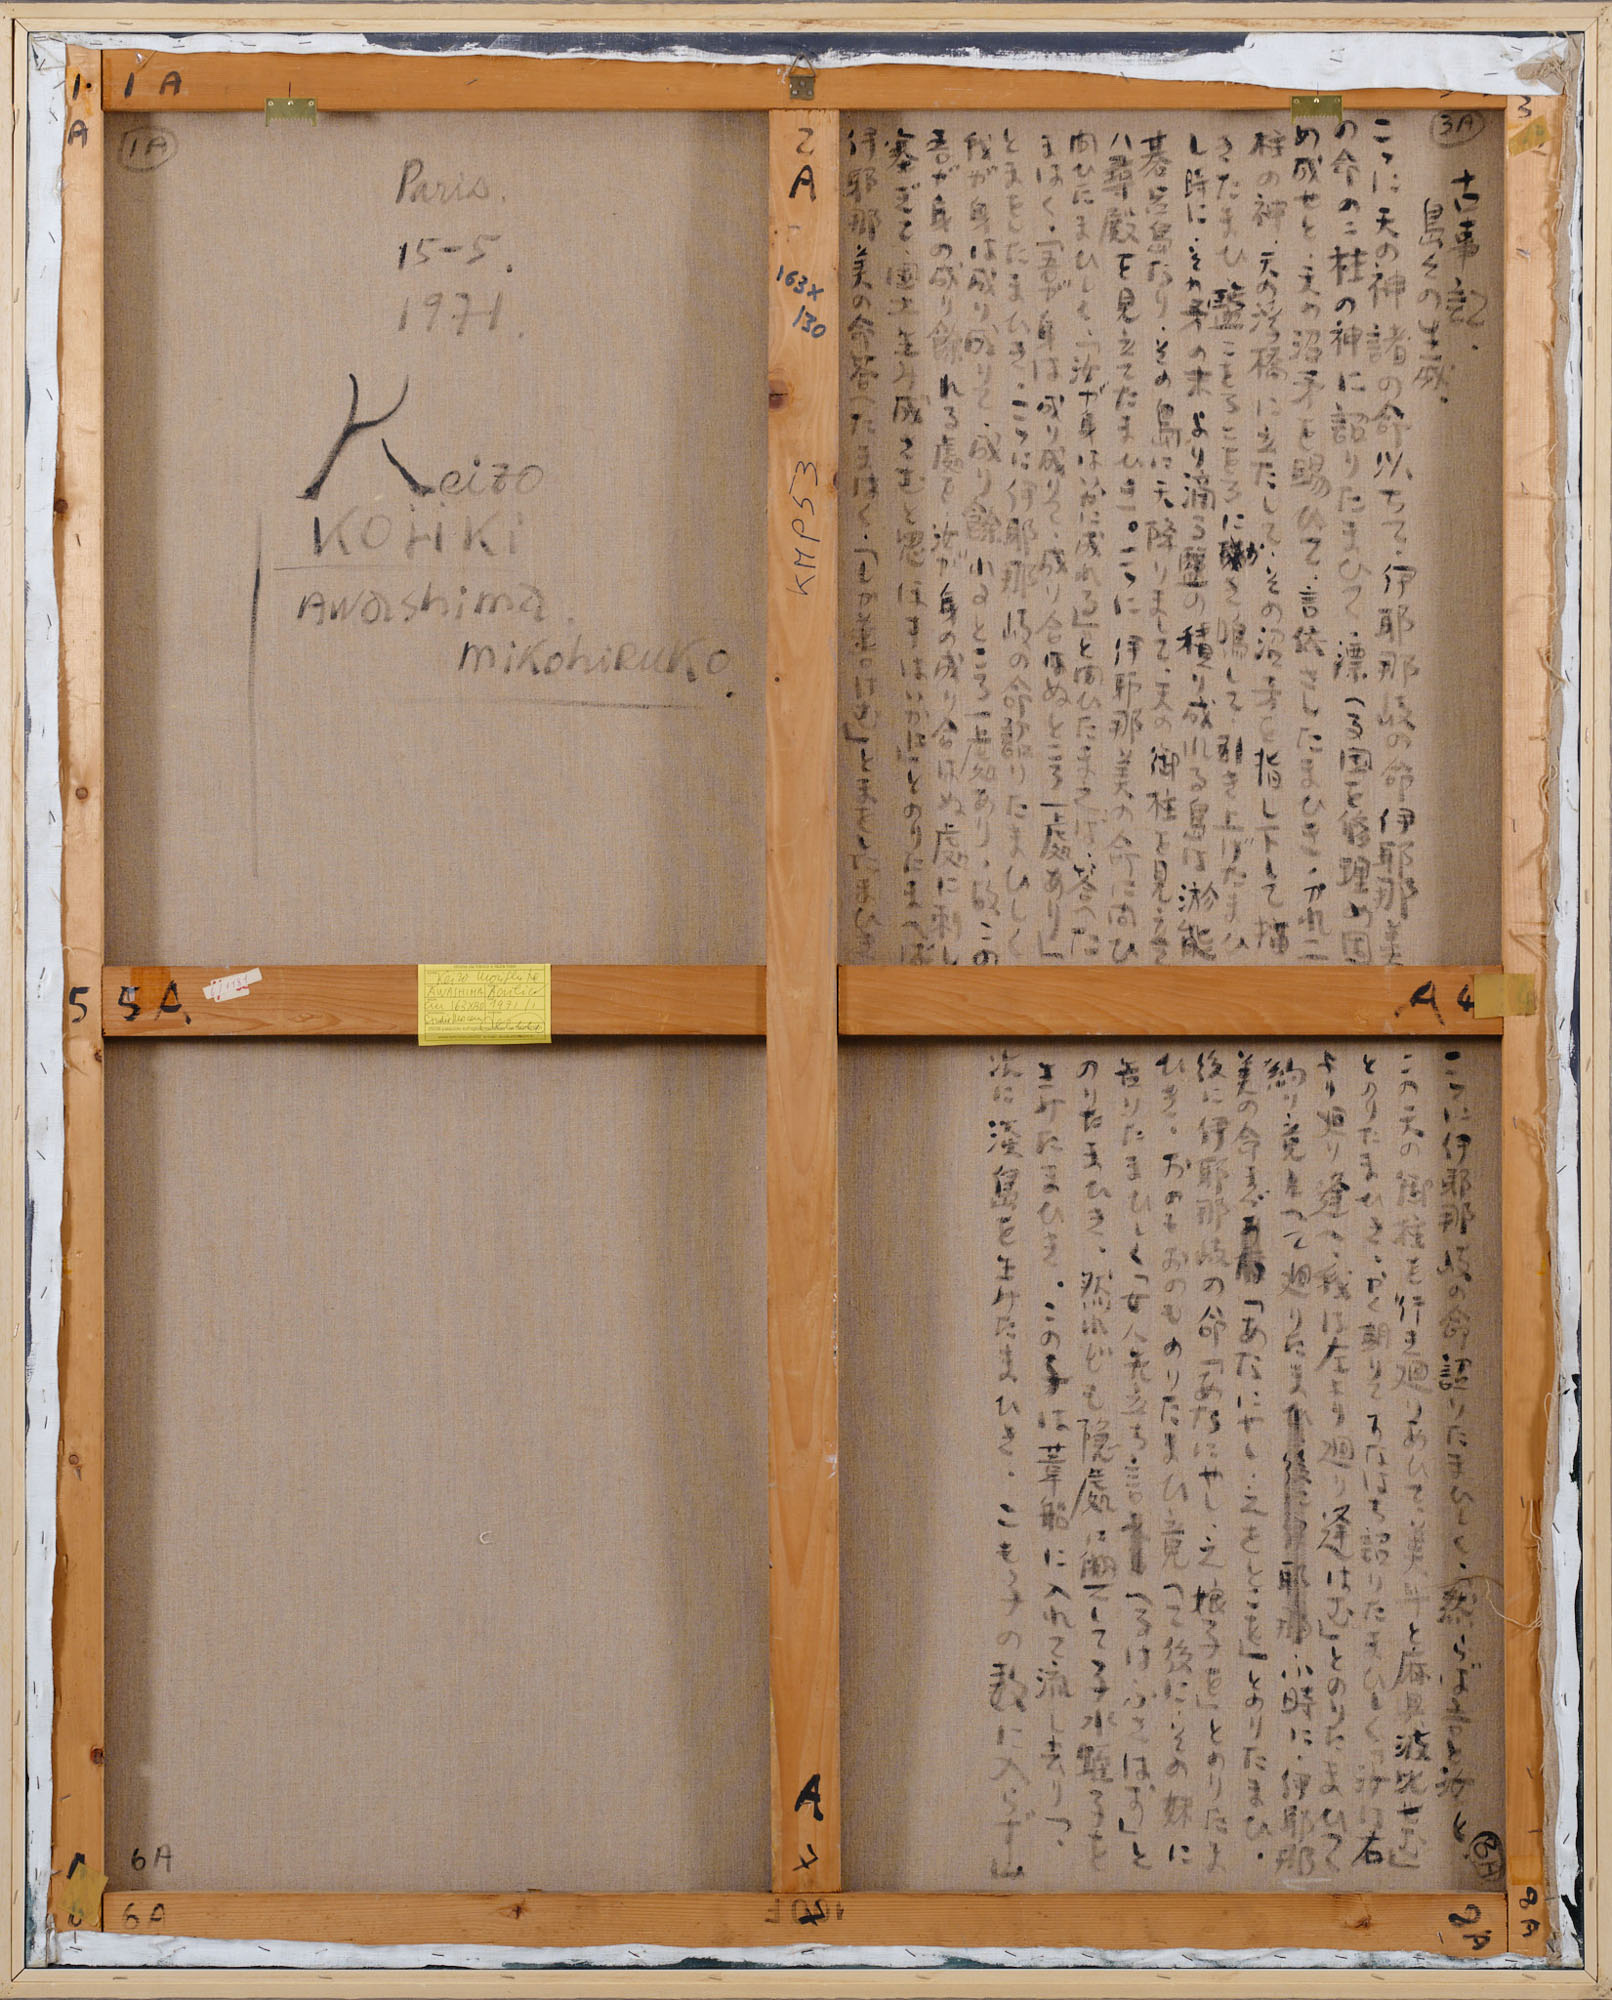 1.
1 A
A
1A
Paris.
15-5.
1971.
Keizo
KOJiKi
AWAshima.
MiKohiRUKO.
2
A
163×
130
KMP53
3
3A
古事記.
島々の生成.
ここに天の神諸の命以ちて.伊耶那岐の命伊耶那美
の命の二柱の神に詔りたまひて.漂へる国を修理め固
め成せと.天の沼矛を賜ひて.言依さしたまひき.かれ二
柱の神.天の浮橋に立たして.その沼矛を指し下して
きたまひ塩こをろこをろに き鳴して.引き上げたまひ
し時に.その矛の末より滴る塩の積り成れる島は淤能
碁呂島なり.その島に天降りまして.天の御柱を見立て
八尋殿を見立てたまひき。ここに伊耶那美の命に問ひ
問ひたまひしく.「汝が身は いかに成れる」と問ひたまへば.答へた
まはく.「吾が身は成り成りて.成り合はぬところ一處あり」
とまをしたまひき.ここに伊耶那岐の命詔りたまひしく
我が身は成り成りて.成り餘れるところ一處あり.故この
吾が身の成り餘れる處を汝が身の成り合はぬ處に刺し
塞ぎて.国土生み成さむと思ほすはいかに」とのりたまへば
伊耶那美の命答へたまはく.
5
5 A
AWASHIMA
163×130
1971
A 4
ここに伊耶那岐の命詔りたまひしく.然らば吾と汝と.
この天の御柱を行き廻りあひて.美斗の麻具波比せむ」
とのりたまひき.かく期りてすなはち詔りたまひしく「汝は右
より廻り逢へ.我は左より廻り逢はむ」とのりたまひて
約り竟へて廻りたまふ時に.伊耶那
美の命まづ「あなにやし.えをとこを」とのりたまひ.
後に伊耶那岐の命「あなにやし.え娘子を」とのりたま
ひき。おのもおのものりたまひ竟へて後に.その妹に
告りたまひしく「女人先立ち言へるはふさはず」と
のりたまひき.然れども隠處に興して子水蛭子を
生みたまひき.この子は葦船に入れて流し去りつ.
次に淡島を生みたまひき.こも子の数に入らず
6A
6A
A
8A
8A